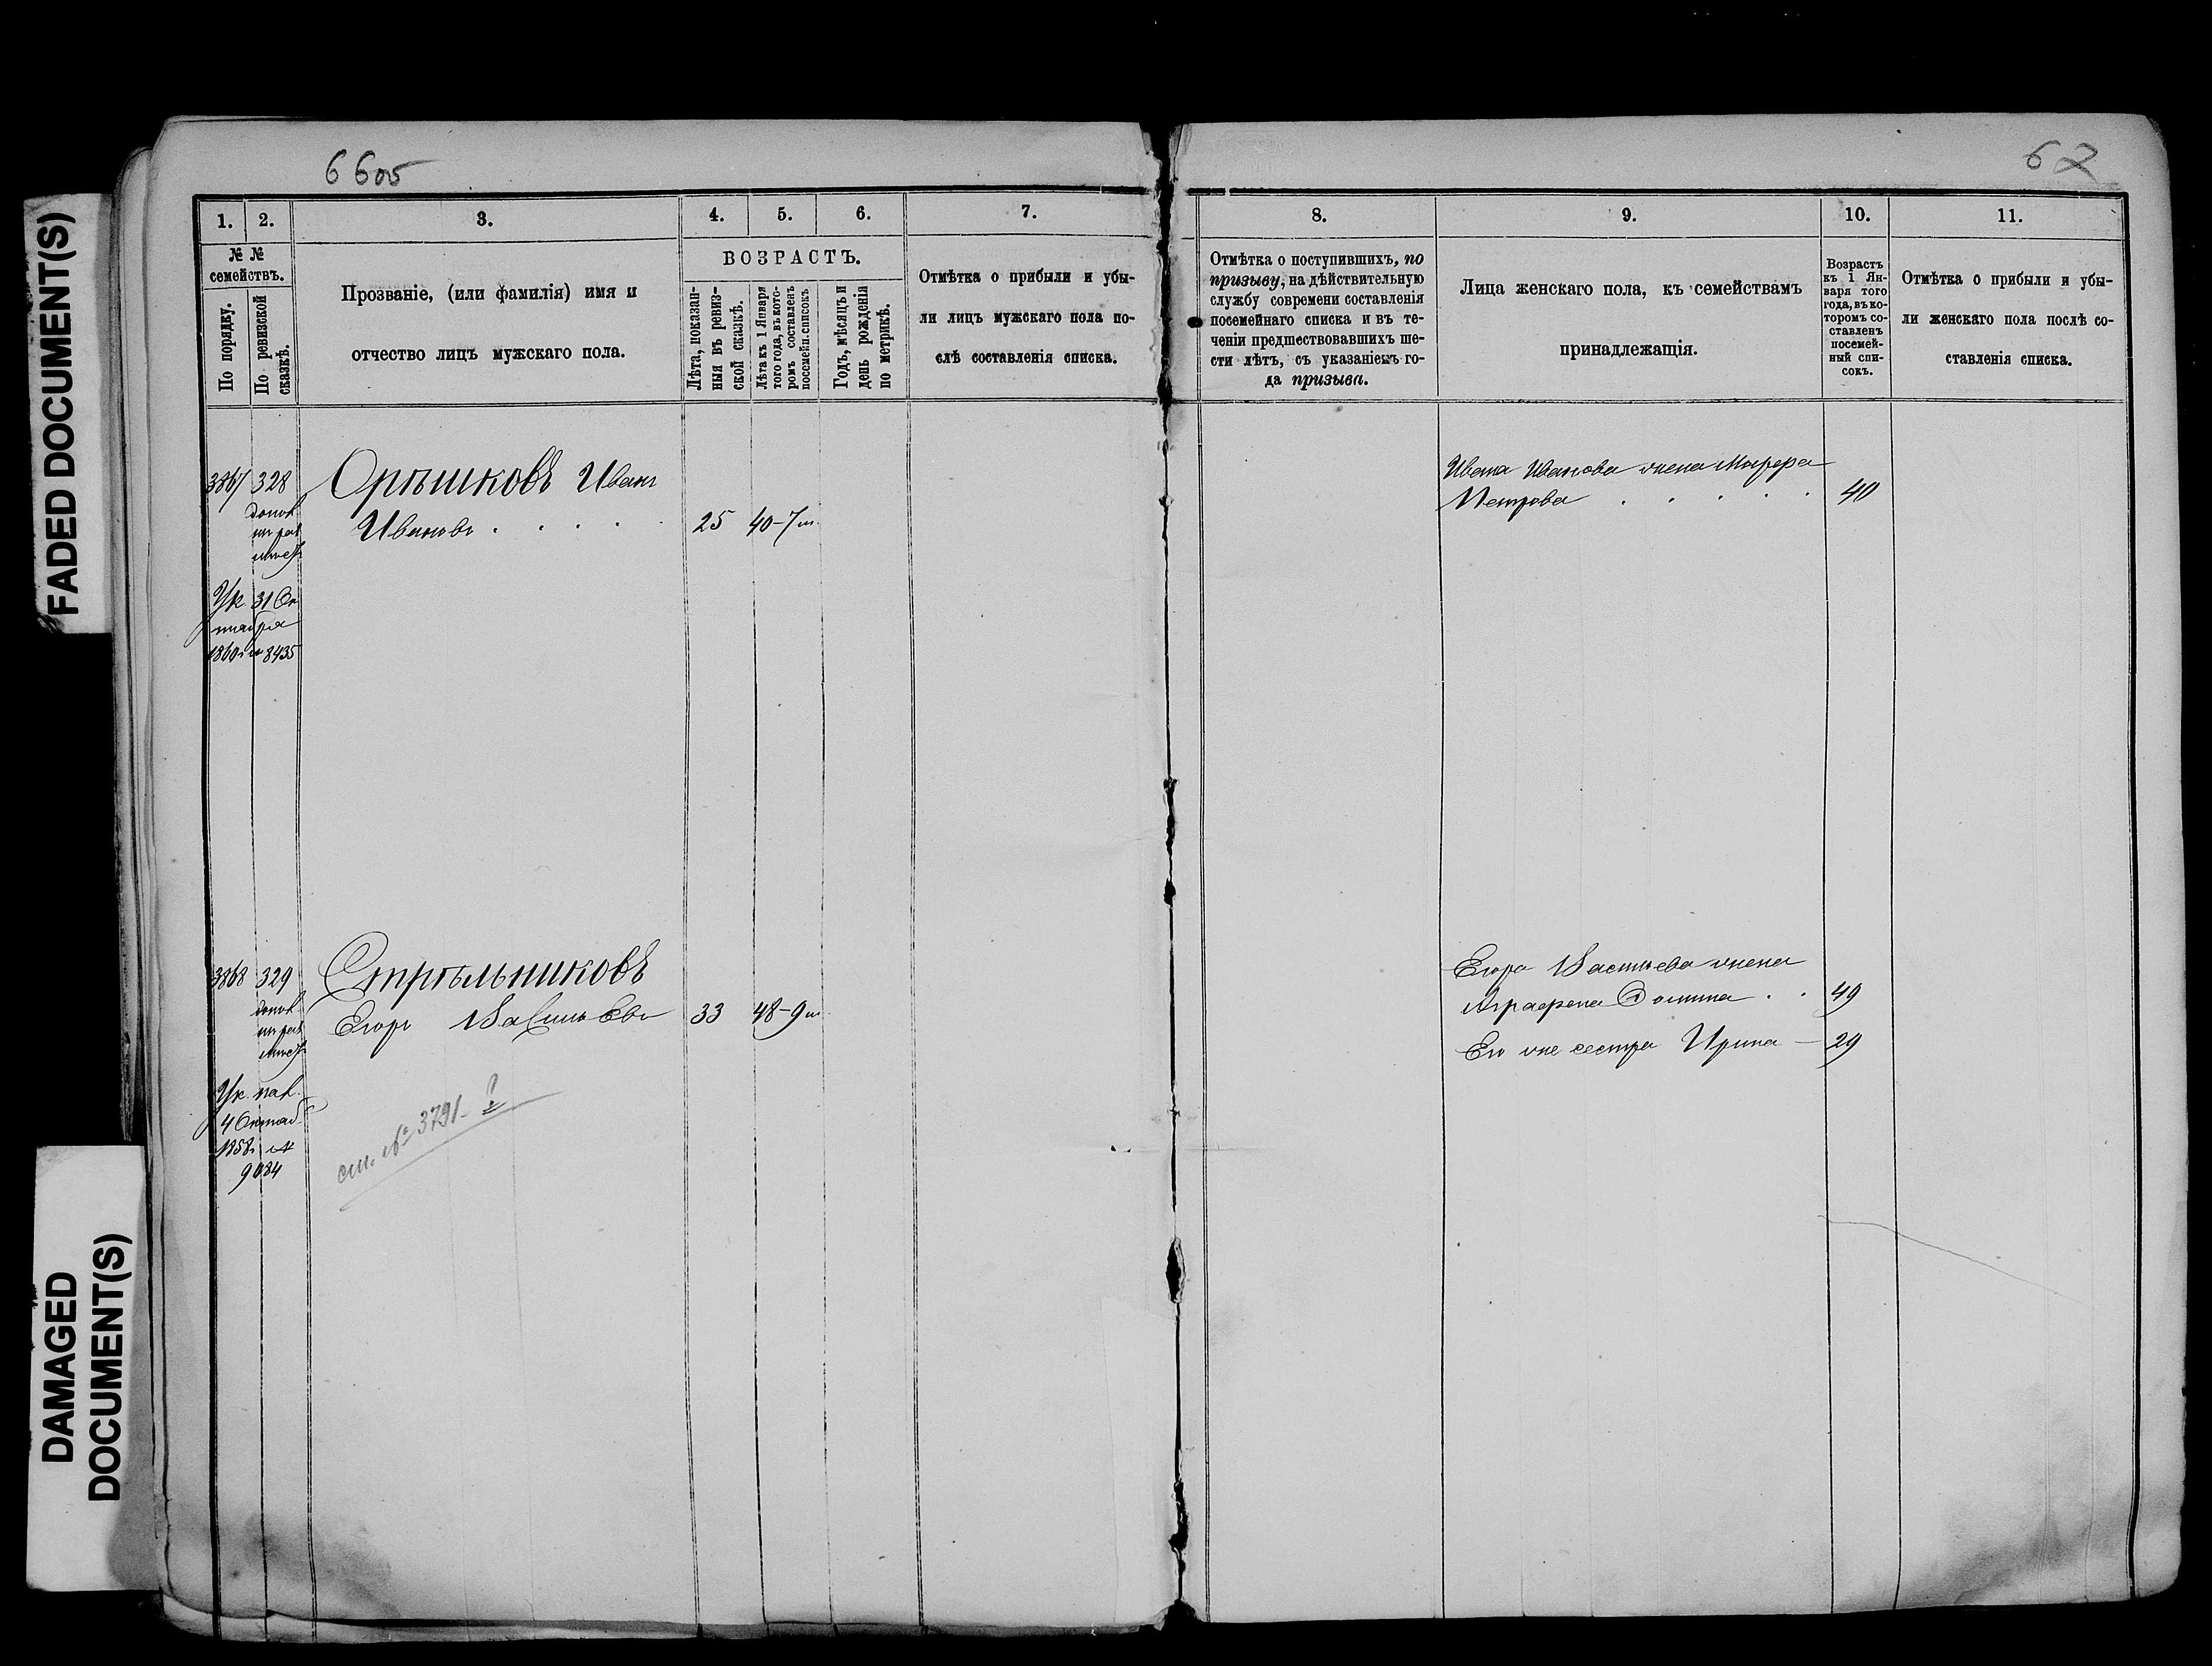 FADED DOCUMENT(S)
DAMAGED
DOCUMENT(S)
6 6об
62
1.
2.
3.
4.
5.
6.
7.
8.
9.
10.
11.
№ №
семействъ.
По порядку.
По ревизской
сказкѣ.
Прозваніе, (или фамилія) имя и
отчество лицъ мужскаго пола.
ВОЗРАСТЪ.
Лѣта, показан-
ныя въ ревиз-
ской сказкѣ.
Лѣта къ 1 Января
того года, въ кото-
ромъ составленъ
посемейн. списокъ
Годъ, мѣсяцъ и
день рожденія
по метрикѣ.
Отмѣтка о прибыли и убы-
ли лицъ мужскаго пола по-
слѣ составленія списка.
Отмѣтка о поступившихъ, по
призыву, на дѣйствительную
службу современи составленія
посемейнаго списка и въ те-
ченіи предшествовавшихъ ше-
сти лѣтъ, съ указаніемъ го-
да призыва.
Лица женскаго пола, къ семействамъ
принадлежащія.
Возрастъ
къ 1 Ян-
варя того
года, въ ко-
торомъ со-
ставленъ
посемей-
ный спи-
сокъ.
Отмѣтка о прибыли и убы-
ли женскаго пола послѣ со-
ставленія списка.
3867 328 Орѣшковъ Иванъ
Ивановъ . . . . 25 40-7м.
Ивана Иванова жена Марфа
Петрова . . . . . 40
Ук 31 Ок
тября
1860 г. № 8435
3868 329 Стрѣльниковъ
Егоръ Васильевъ 33 48-9м.
Егора Васильева жена
Аграфена Фомина . . 49
Его же сестра Ирина — 29
Ук. пал.
4 Октяб.
1858 г. №
9084
см. № 3791-?